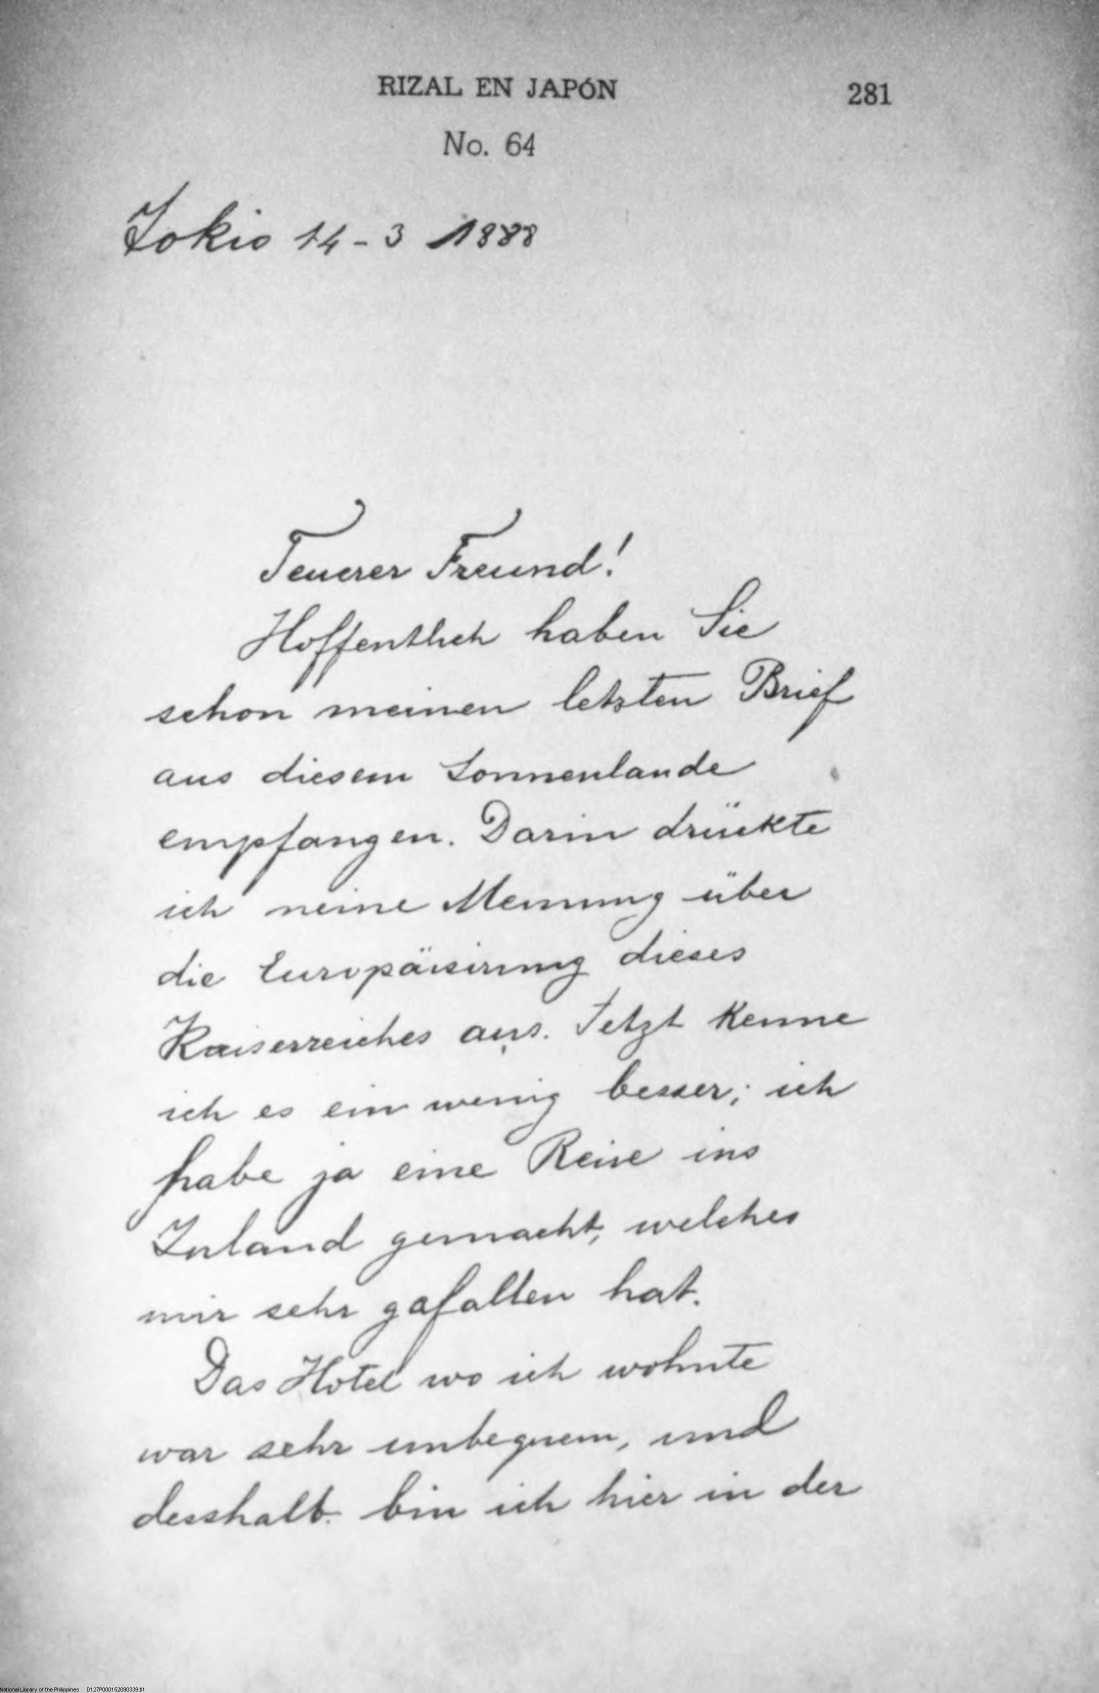 RIZAL EN JAPÓN 281
No. 64
Tokio 14-3 1888
Teuerer Freund!
Hoffentlich haben Sie
schon meinen letzten Brief
aus diesem Sonnenlande
empfangen. Darin drückte
ich meine Meinung über
die Europäisirung dieses
Kaiserreiches aus. Jetzt kenne
ich es ein wenig besser; ich
habe ja eine Reise ins
Inland gemacht, welches
mir sehr gafallen hat.
Das Hotel wo ich wohnte
war sehr unbequem, und
desshalb bin ich hier in der
National Library of the Philippines